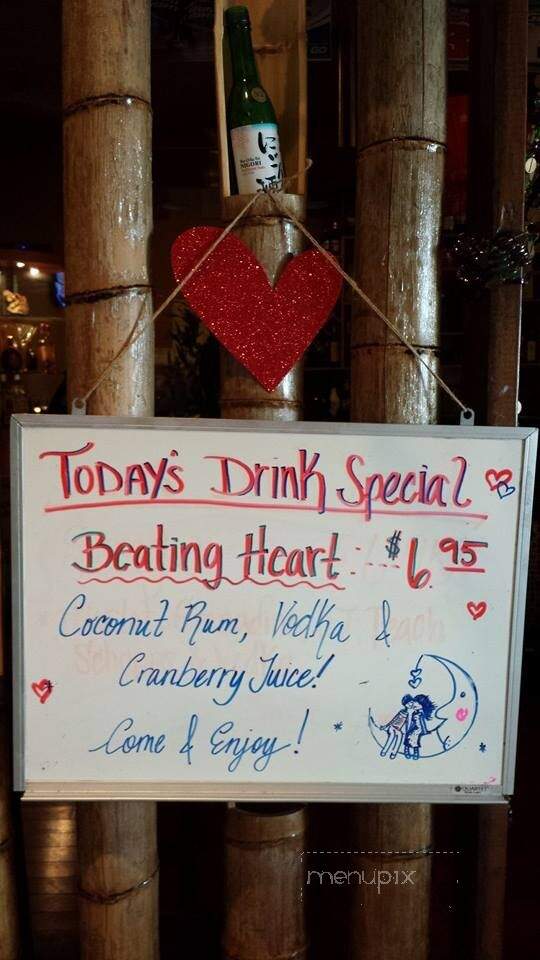 にごり
NIGORI
TODAY'S Drink Special
Beating Heart: $6.95
Coconut Rum, Vodka &
Cranberry Juice!
Come & Enjoy!
QUARTET
menupix